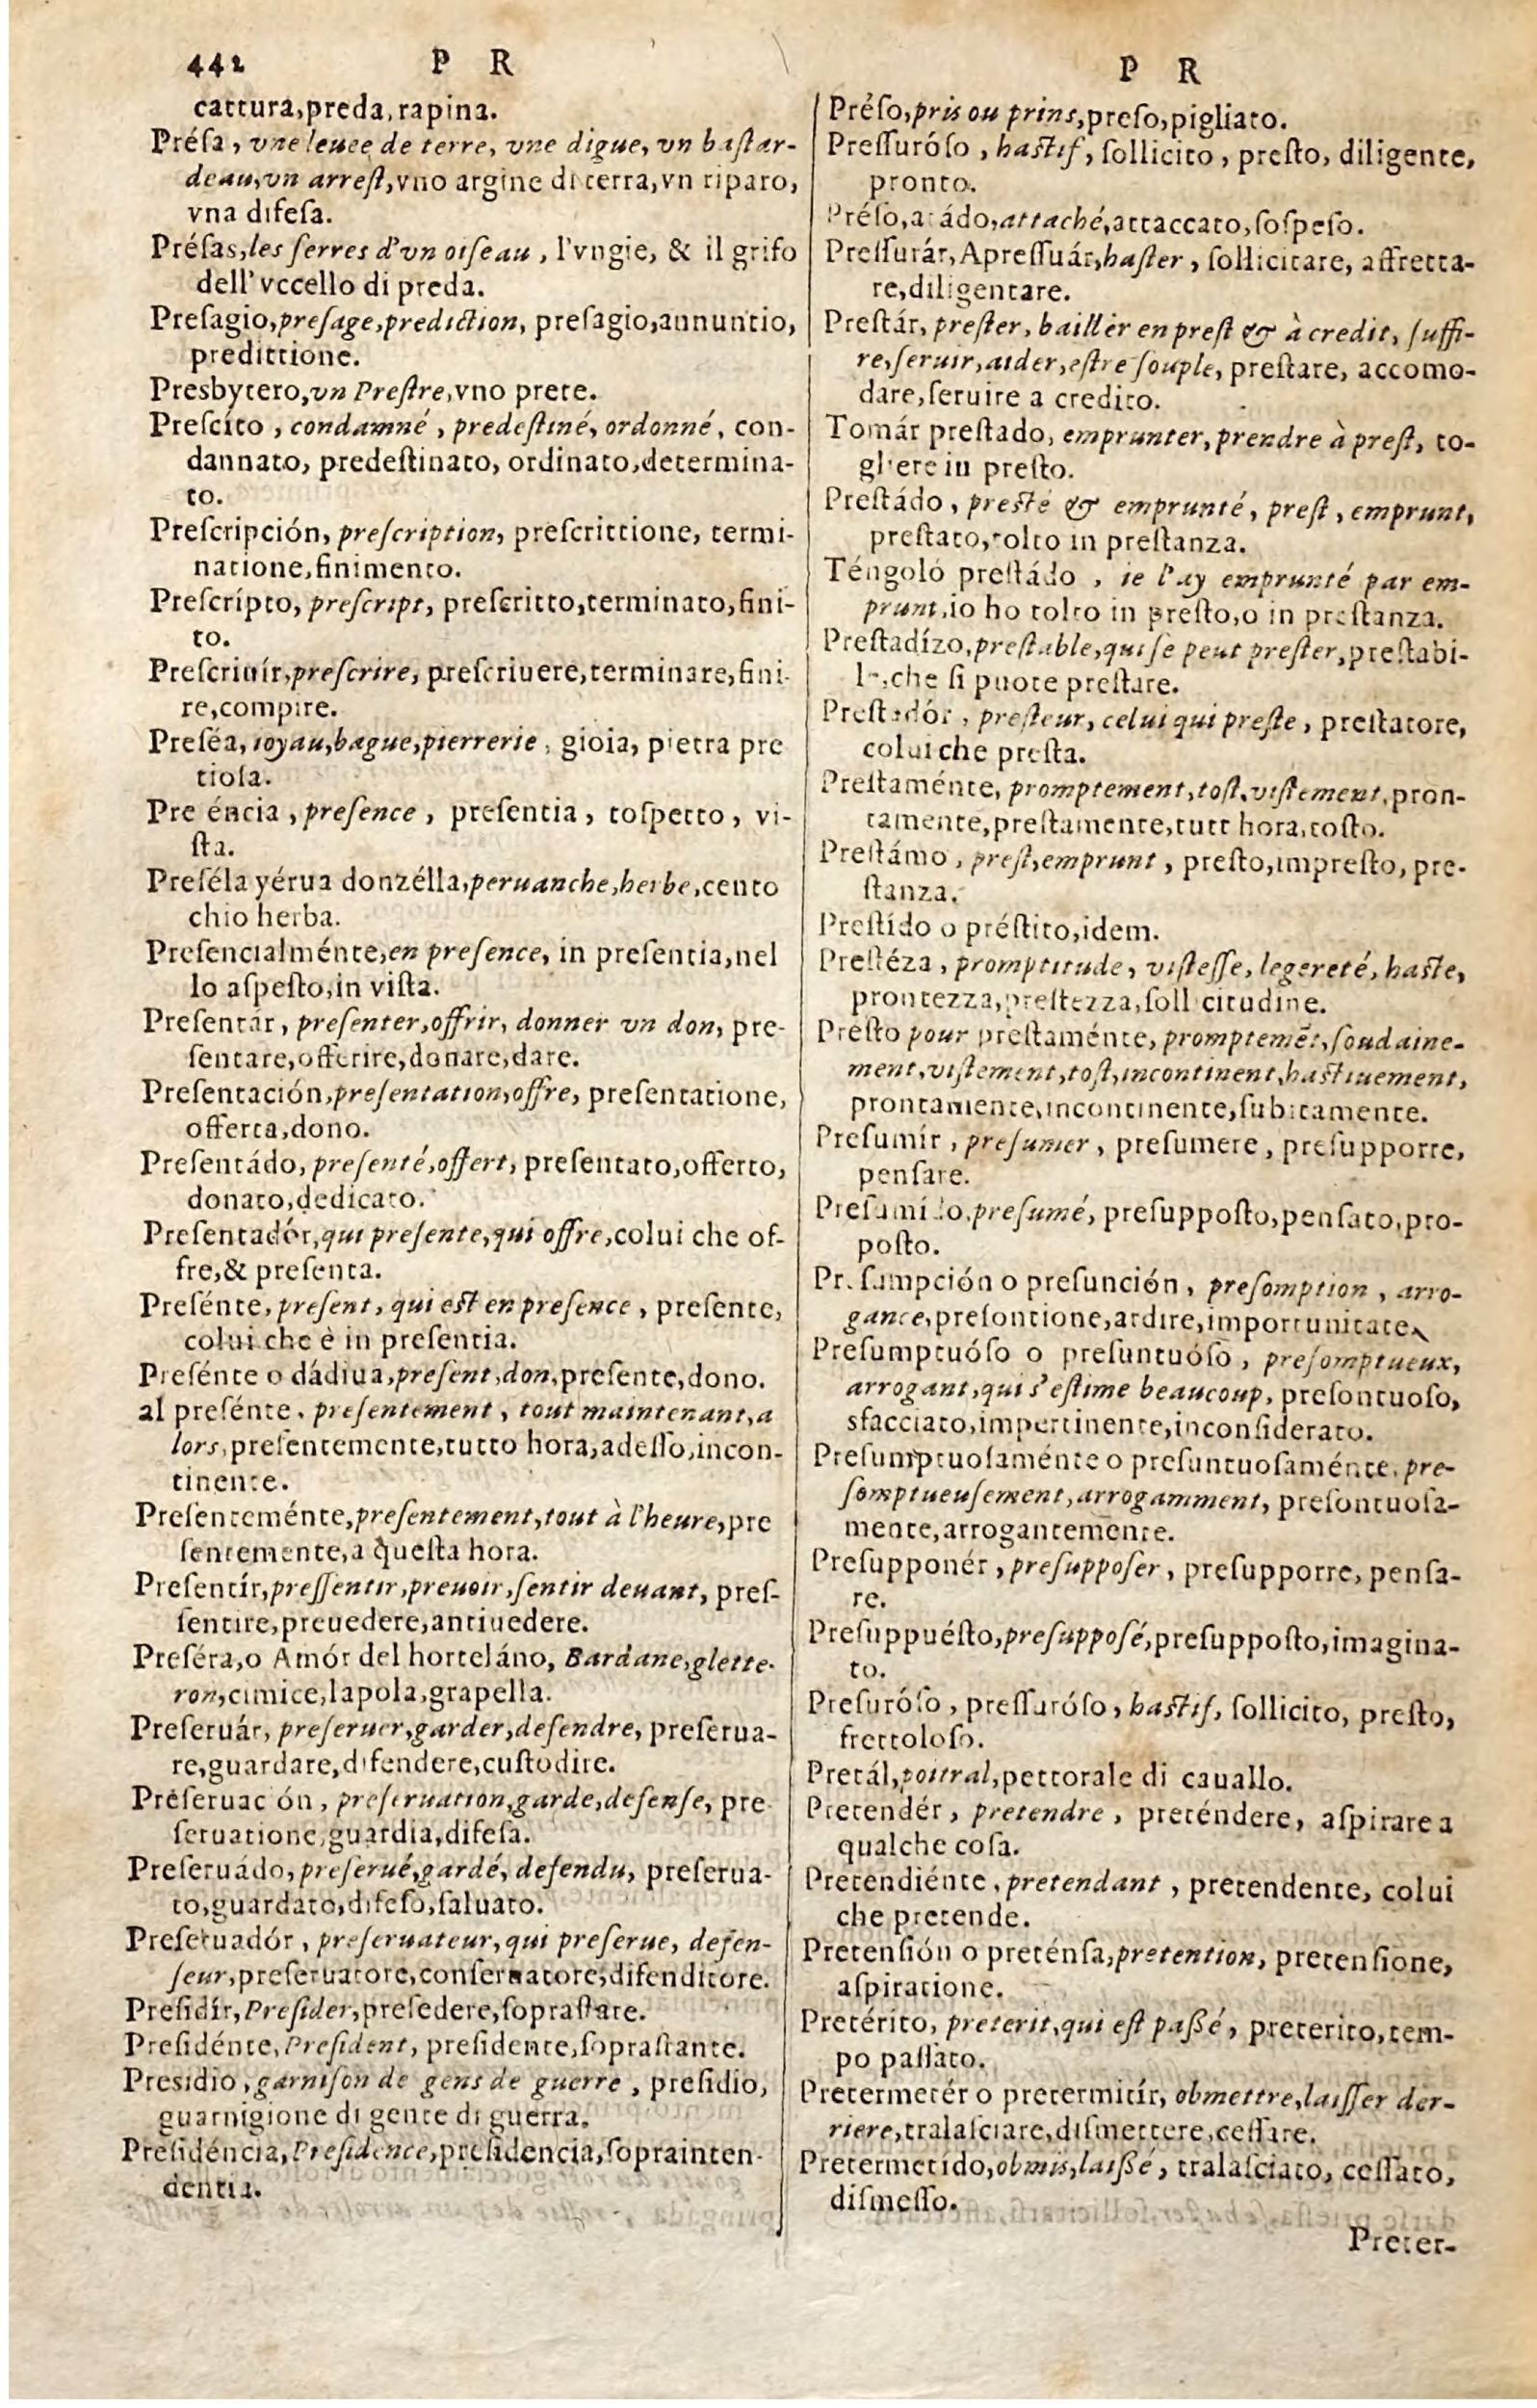 442 P R
cattura,preda,rapina.
Présa, vne leuee de terre, vne digue, vn bastar-
deau,vn arrest,vno argine di terra,vn riparo,
vna difesa.
Présas,les serres d'vn oiseau, l'vngie, & il grifo
dell'vccello di preda.
Presagio,presage,prediction, presagio,annuntio,
predittione.
Presbytero,vn Prestre,vno prete.
Prescíto, condamné, predestiné, ordonné, con-
dannato, predestinato, ordinato,determina-
to.
Prescripción, prescription, prescrittione, termi-
natione,finimento.
Prescrípto, prescript, prescritto,terminato,fini-
to.
Prescriuír,prescrire, prescriuere,terminare,fini-
re,compire.
Preséa, ioyau,bague,pierrerie, gioia, pietra pre
tiosa.
Pre éncia, presence, presentia, cospetto, vi-
sta.
Preséla yérua donzélla,peruanche,herbe,cento
chio herba.
Presencialménte,en presence, in presentia,nel
lo aspesto,in vista.
Presentár, presenter,offrir, donner vn don, pre-
sentare,offerire,donare,dare.
Presentación,presentation,offre, presentatione,
offerta,dono.
Presentádo, presenté,offert, presentato,offerto,
donato,dedicato.
Presentadór,qui presente,qui offre,colui che of-
fre,& presenta.
Presénte, present, qui est en presence, presente,
colui che è in presentia.
Presénte o dádiua,present,don,presente,dono.
al presénte, presentement, tout maintenant,a
lors,presentemente,tutto hora,adesso,incon-
tinente.
Presenteménte,presentement,tout à l'heure,pre
sentemente,a questa hora.
Presentír,pressentir,preuoir,sentir deuant, pres-
sentire,preuedere,antiuedere.
Preséra,o Amór del horteláno, Bardane,glette-
ron,cimice,lapola,grapella.
Preseruár, preseruer,garder,defendre, preserua-
re,guardare,difendere,custodire.
Préseruac ón, preseruation,garde,defense, pre
seruatione,guardia,difesa.
Preseruádo, preserué,gardé, defendu, preserua-
to,guardato,difeso,saluato.
Preseruadór, preseruateur,qui preserue, defen-
seur,preseruatore,conseruatore,difenditore.
Presidír,Presider,presedere,soprastare.
Presidénte,President, presidente,soprastante.
Presidio,garnison de gens de guerre, presidio,
guarnigione di gente di guerra.
Presidéncia,Presidence,presidencia,soprainten-
dentia.
P R
Préso,pris ou prins,preso,pigliato.
Pressuróso, hastif, sollicito, presto, diligente,
pronto.
Préso,atádo,attaché,attaccato,sospeso.
Pressurár,Apressuár,haster, sollicitare, affretta-
re,diligentare.
Prestár, prester, bailler en prest & à credit, suffi-
re,seruir,aider,estre souple, prestare, accomo-
dare,seruire a credito.
Tomár prestado, emprunter,prendre à prest, to-
gliere in presto.
Prestádo, presté & emprunté, prest, emprunt,
prestato,tolto in prestanza.
Téngoló prestádo, ie l'ay emprunté par em-
prunt,io ho tolto in presto,o in prestanza.
Prestadízo,prestable,qui se peut prester,prestabi-
le,che si puote prestare.
Prestadór, presteur, celui qui preste, prestatore,
colui che presta.
Prestaménte, promptement,tost,vistement,pron-
tamente,prestamente,tutt hora,tosto.
Prestámo, prest,emprunt, presto,impresto, pre-
stanza.
Prestído o préstito,idem.
Prestéza, promptitude, vistesse, legereté, haste,
prontezza,prestezza,soll citudine.
Présto pour prestaménte, promptemẽt,soudaine-
ment,vistement,tost,incontinent,hastiuement,
prontamente,incontinente,subitamente.
Presumír, presumer, presumere, presupporre,
pensare.
Presumido,presumé, presupposto,pensato,pro-
posto.
Pr. sumpción o presunción, presomption, arro-
gance,presontione,ardire,importunitate.
Presumptuóso o presuntuóso, presomptueux,
arrogant,qui s'estime beaucoup, presontuoso,
sfacciato,impertinente,inconsiderato.
Presumptuosaménte o presuntuosaménte, pre-
somptueusement,arrogamment, presontuosa-
mente,arrogantemente.
Presupponér, presupposer, presupporre, pensa-
re.
Presuppuésto,presupposé,presupposto,imagina-
to.
Presuróso, pressuróso, hastif, sollicito, presto,
frettoloso.
Pretál,poitral,pettorale di cauallo.
Pretendér, pretendre, preténdere, aspirare a
qualche cosa.
Pretendiénte, pretendant, pretendente, colui
che pretende.
Pretensión o preténsa,pretention, pretensione,
aspiratione.
Pretérito, preterit,qui est passé, preterito,tem-
po passato.
Pretermetér o pretermitír, obmettre,laisser der-
riere,tralasciare,dismettere,cessare.
Pretermetído,obmis,laissé, tralasciato, cessato,
dismesso.
Preter-